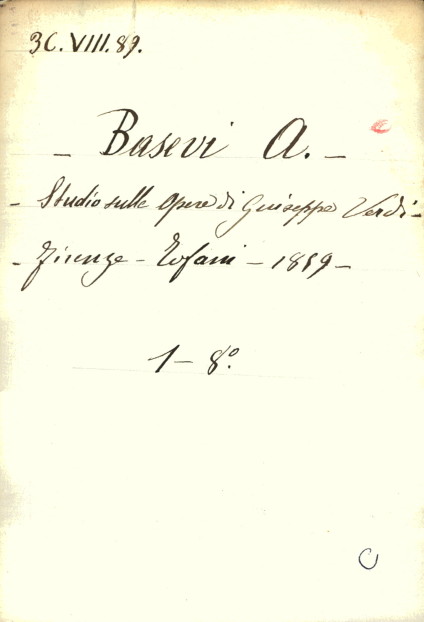 3C.VIII.89.
- Basevi A. -
- Studio sulle Opere di Giuseppe Verdi -
- Firenze - Tofani - 1859 -
1 - 8º.
C